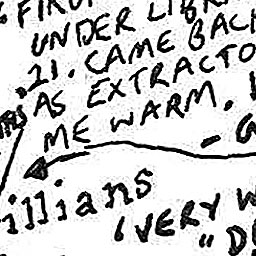 UNDER LIBR
.21. CAME BACK
AS EXTRACTO
ME WARM.
illians
"VERY W
"D